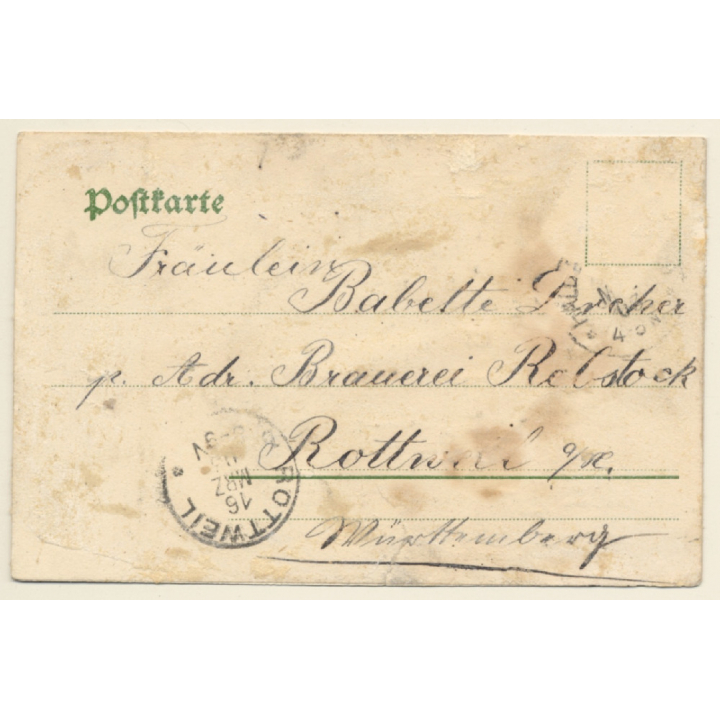 Postkarte
Fräulein
Babette
p. Adr. Brauerei Rebstock
Rottweil a/N.
Württemberg
ROTTWEIL
16
MRZ